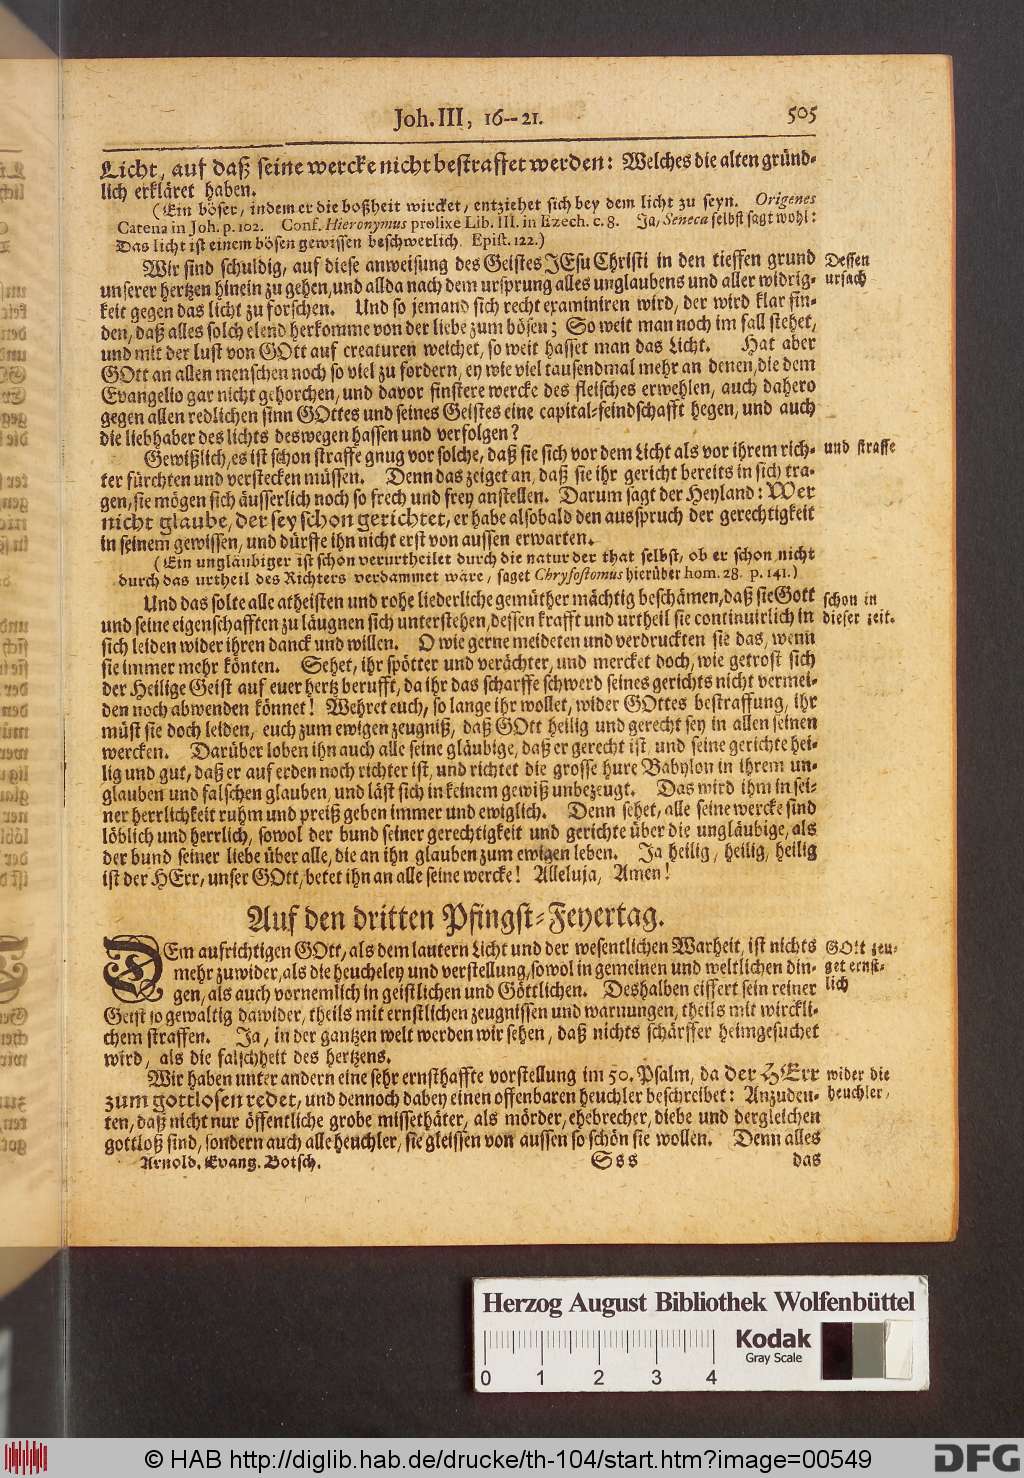 Joh. III, 16--21. 505
Licht, auf daß seine wercke nicht bestraffet werden: Welches die alten gründ-
lich erkläret haben.
(Ein böser, indem er die boßheit wircket, entziehet sich bey dem licht zu seyn. Origenes
Catena in Joh. p. 102. Conf. Hieronymus prolixe Lib. III. in Ezech. c. 8. Ja, Seneca selbst sagt wohl:
Das licht ist einem bösen gewissen beschwerlich. Epist. 122.)
Wir sind schuldig, auf diese anweisung des Geistes JEsu Christi in den tieffen grund Dessen
unserer hertzen hinein zu gehen, und allda nach dem ursprung alles unglaubens und aller widrig- ursach
keit gegen das licht zu forschen. Und so jemand sich recht examiniren wird, der wird klar fin-
den, daß alles solch elend herkomme von der liebe zum bösen; So weit man noch im fall stehet,
und mit der lust von GOtt auf creaturen weichet, so weit hasset man das Licht. Hat aber
GOtt an allen menschen noch so viel zu fordern, ey wie viel tausendmal mehr an denen, die dem
Evangelio gar nicht gehorchen, und davor finstere wercke des fleisches erwehlen, auch dahero
gegen allen redlichen sinn GOttes und seines Geistes eine capital-feindschafft hegen, und auch
die liebhaber des lichts deswegen hassen und verfolgen?
Gewißlich, es ist schon straffe gnug vor solche, daß sie sich vor dem Licht als vor ihrem rich- und straffe
ter fürchten und verstecken müssen. Denn das zeiget an, daß sie ihr gericht bereits in sich tra-
gen, sie mögen sich äusserlich noch so frech und frey anstellen. Darum sagt der Heyland: Wer
nicht glaube, der sey schon gerichtet, er habe alsobald den ausspruch der gerechtigkeit
in seinem gewissen, und dürffe ihn nicht erst von aussen erwarten.
(Ein ungläubiger ist schon verurtheilet durch die natur der that selbst, ob er schon nicht
durch das urtheil des Richters verdammet wäre, saget Chrysostomus hierüber hom. 28. p. 141.)
Und das solte alle atheisten und rohe liederliche gemüther mächtig beschämen, daß sie Gott schon in
und seine eigenschafften zu läugnen sich unterstehen, dessen krafft und urtheil sie continuirlich in dieser zeit.
sich leiden wider ihren danck und willen. O wie gerne meideten und verdruckten sie das, wenn
sie immer mehr könten. Sehet, ihr spötter und verächter, und mercket doch, wie getrost sich
der Heilige Geist auf euer hertz berufft, da ihr das scharffe schwerd seines gerichts nicht vermei-
den noch abwenden könnet! Wehret euch, so lange ihr wollet, wider GOttes bestraffung, ihr
müst sie doch leiden, euch zum ewigen zeugniß, daß GOtt heilig und gerecht sey in allen seinen
wercken. Darüber loben ihn auch alle seine gläubige, daß er gerecht ist, und seine gerichte hei-
lig und gut, daß er auf erden noch richter ist, und richtet die grosse hure Babylon in ihrem un-
glauben und falschen glauben, und läst sich in keinem gewiß unbezeugt. Das wird ihm in sei-
ner herrlichkeit ruhm und preiß geben immer und ewiglich. Denn sehet, alle seine wercke sind
löblich und herrlich, sowol der bund seiner gerechtigkeit und gerichte über die ungläubige, als
der bund seiner liebe über alle, die an ihn glauben zum ewigen leben. Ja heilig, heilig, heilig
ist der HErr, unser GOtt, betet ihn an alle seine wercke! Alleluja, Amen!
Auf den dritten Pfingst-Feyertag.
DEm aufrichtigen GOtt, als dem lautern Licht und der wesentlichen Warheit, ist nichts GOtt zeu-
mehr zuwider, als die heucheley und verstellung, sowol in gemeinen und weltlichen din- get ernst-
gen, als auch vornemlich in geistlichen und Göttlichen. Deshalben eiffert sein reiner lich
Geist so gewaltig dawider, theils mit ernstlichen zeugnissen und warnungen, theils mit wirckli-
chem straffen. Ja, in der gantzen welt werden wir sehen, daß nichts schärffer heimgesuchet
wird, als die falschheit des hertzens.
Wir haben unter andern eine sehr ernsthaffte vorstellung im 50. Psalm, da der HErr wider die
zum gottlosen redet, und dennoch dabey einen offenbaren heuchler beschreibet: Anzuden- heuchler,
ten, daß nicht nur öffentliche grobe missethäter, als mörder, ehebrecher, diebe und dergleichen
gottloß sind, sondern auch alle heuchler, sie gleissen von aussen so schön sie wollen. Denn alles
Arnold. Evang. Botsch. Sss das
Herzog August Bibliothek Wolfenbüttel
Kodak
Gray Scale
0 1 2 3 4
© HAB http://diglib.hab.de/drucke/th-104/start.htm?image=00549
DFG